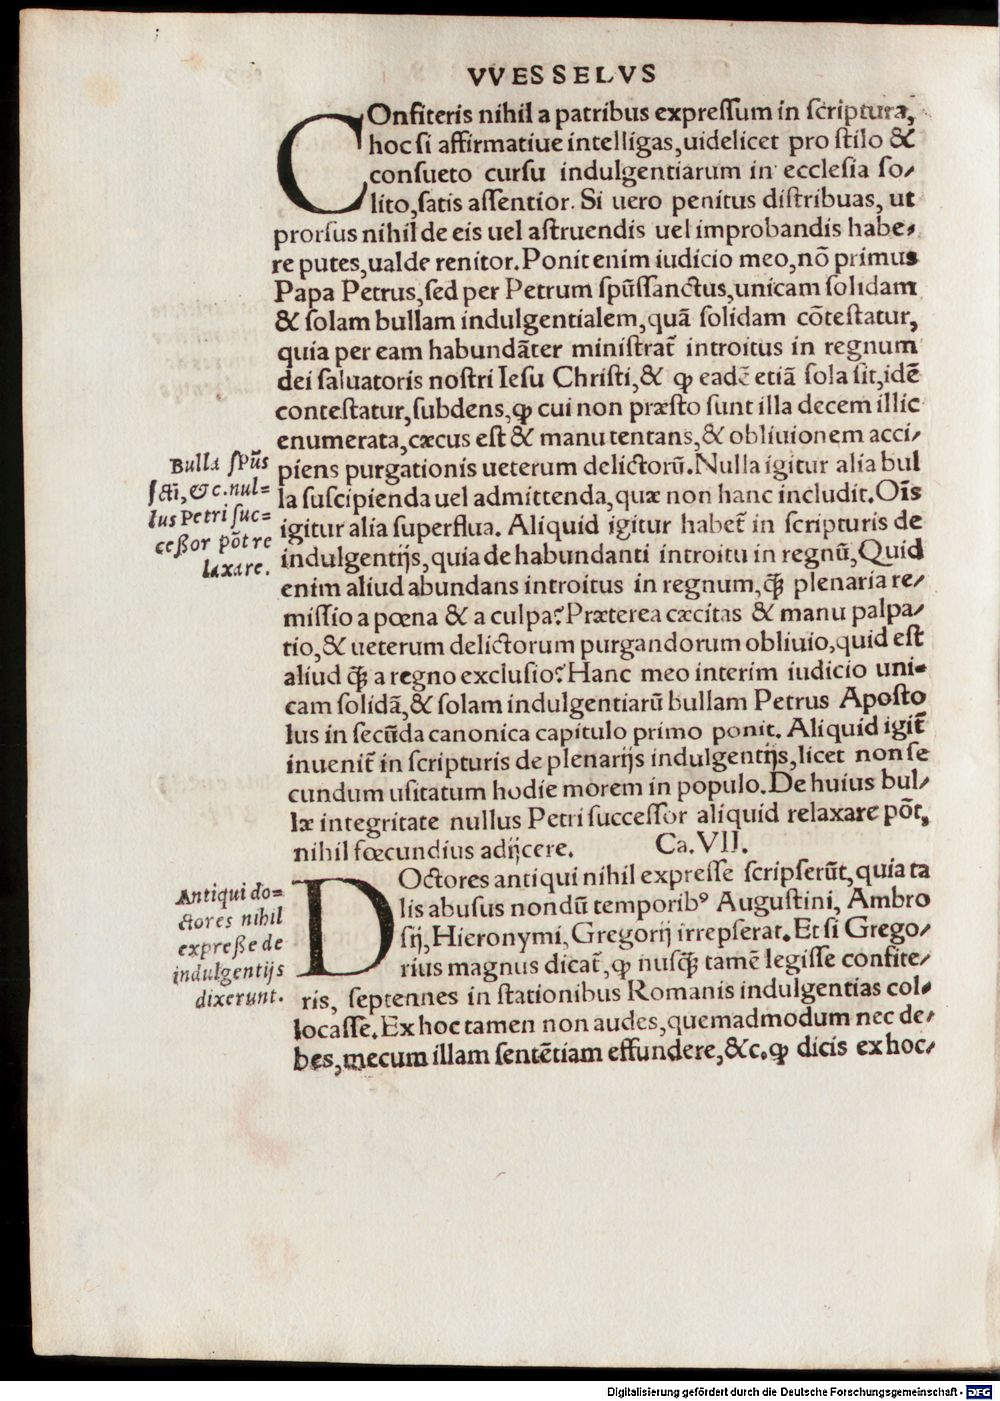 VVESSELVS
COnfiteris nihil a patribus expreſſum in ſcriptura,
hoc ſi affirmatiue intelligas, uidelicet pro ſtilo &
conſueto curſu indulgentiarum in eccleſia ſo/
lito, ſatis aſſentior. Si uero penitus diſtribuas, ut
prorſus nihil de eis uel aſtruendis uel improbandis habe/
re putes, ualde renitor. Ponit enim iudicio meo, nõ primus
Papa Petrus, ſed per Petrum ſpũſſanctus, unicam ſolidam
& ſolam bullam indulgentialem, quã ſolidam cõteſtatur,
quia per eam habundãter miniſtrat̃ introitus in regnum
dei ſaluatoris noſtri Ieſu Chriſti, & ꝙ eadẽ etiã ſola ſit, idẽ
conteſtatur, ſubdens, ꝙ cui non præſto ſunt illa decem illic
enumerata, cæcus eſt & manu tentans, & obliuionem acci/
piens purgationis ueterum delictorũ. Nulla igitur alia bul
la ſuſcipienda uel admittenda, quæ non hanc includit. Oĩs
igitur alia ſuperflua. Aliquid igitur habet̃ in ſcripturis de
indulgentijs, quia de habundanti introitu in regnũ, Quid
enim aliud abundans introitus in regnum, q̃ꝫ plenaria re/
miſſio a pœna & a culpa? Præterea cæcitas & manu palpa/
tio, & ueterum delictorum purgandorum obliuio, quid eſt
aliud q̃ꝫ a regno excluſio? Hanc meo interim iudicio uni/
cam ſolidã, & ſolam indulgentiarũ bullam Petrus Apoſto
lus in ſecũda canonica capitulo primo ponit. Aliquid igit̃
inuenit̃ in ſcripturis de plenarijs indulgentijs, licet non ſe
cundum uſitatum hodie morem in populo. De huius bul/
læ integritate nullus Petri ſucceſſor aliquid relaxare põt,
nihil fœcundius adijcere. Ca. VII.
Bulla ſpũs
ſcti, &c. nul=
lus Petri ſuc=
ceßor põt re
laxare.
DOctores antiqui nihil expreſſe ſcripſerũt, quia ta
lis abuſus nondũ temporibꝰ Auguſtini, Ambro
ſij, Hieronymi, Gregorij irrepſerat. Et ſi Grego/
rius magnus dicat̃, ꝙ nuſq̃ꝫ tamẽ legiſſe confite/
ris, ſeptennes in ſtationibus Romanis indulgentias col/
locaſſe. Ex hoc tamen non audes, quemadmodum nec de/
bes, mecum illam ſentẽtiam effundere, &c. ꝙ dicis ex hoc/
Antiqui do=
ctores nihil
expreße de
indulgentijs
dixerunt.
Digitalisierung gefördert durch die Deutsche Forschungsgemeinschaft - DFG